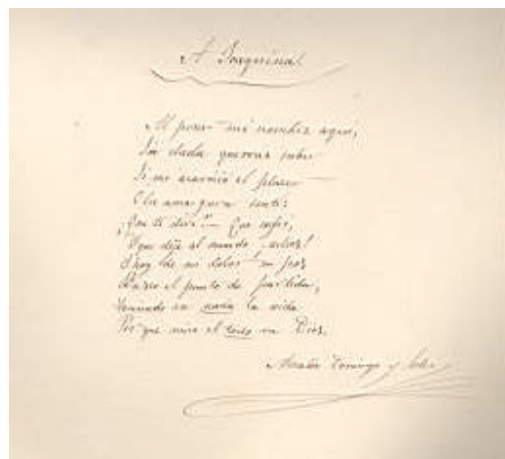 A Joaquina
Al poner mi nombre aquí,
Sin duda querras saber
Si me acarició el placer
O la amargura sentí:
¡Que te diré..... Que sufrí,
Y que dije al mundo adios!
Y hoy de mi dolor en pos
el punto de partida,
en nada la vida
Por que miro el todo en Dios.
Amalia Domingo y Soler